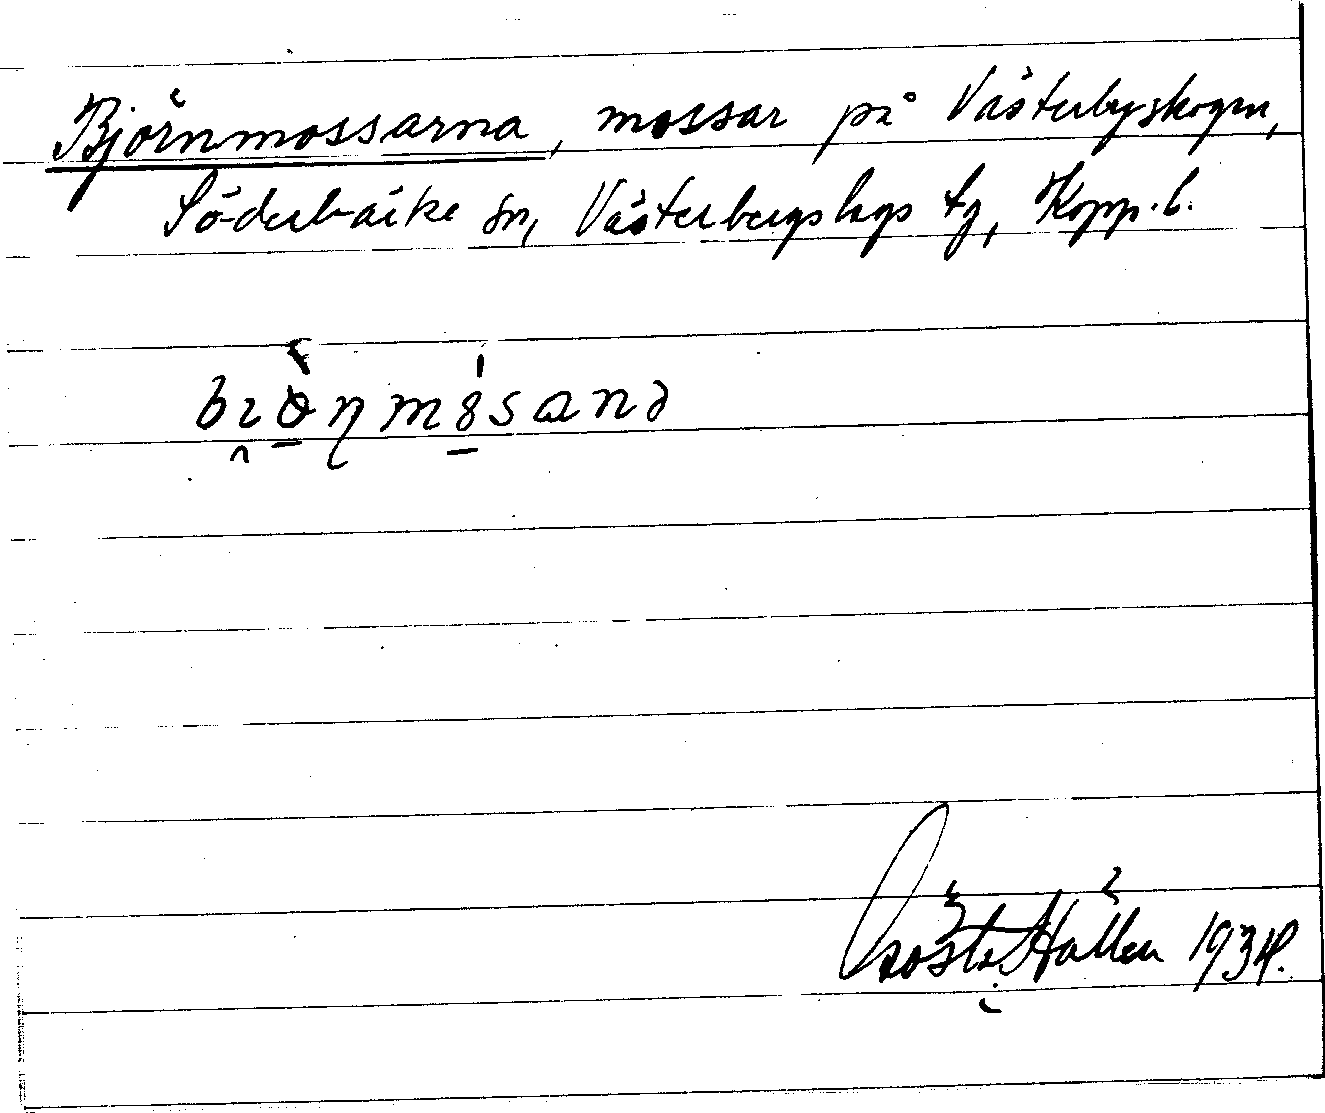 Björnmossarna, mossar på Västerbyskogen,
Söderbärke sn, Västerbergslags tg, Kopp. l.
bıön̡mösanə
Gösta Hallen 1934.